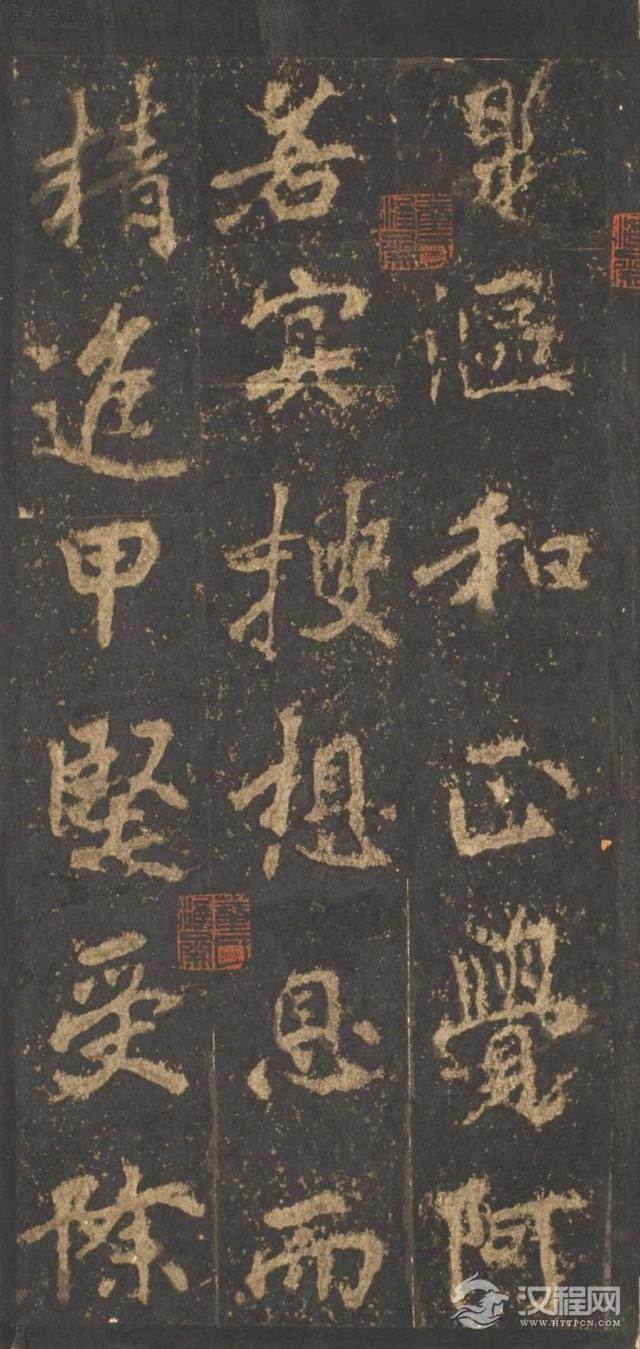 是漚和正覺阿
若冥搜想息而
精進甲堅受除
汉程网
WWW.HTTPCN.COM